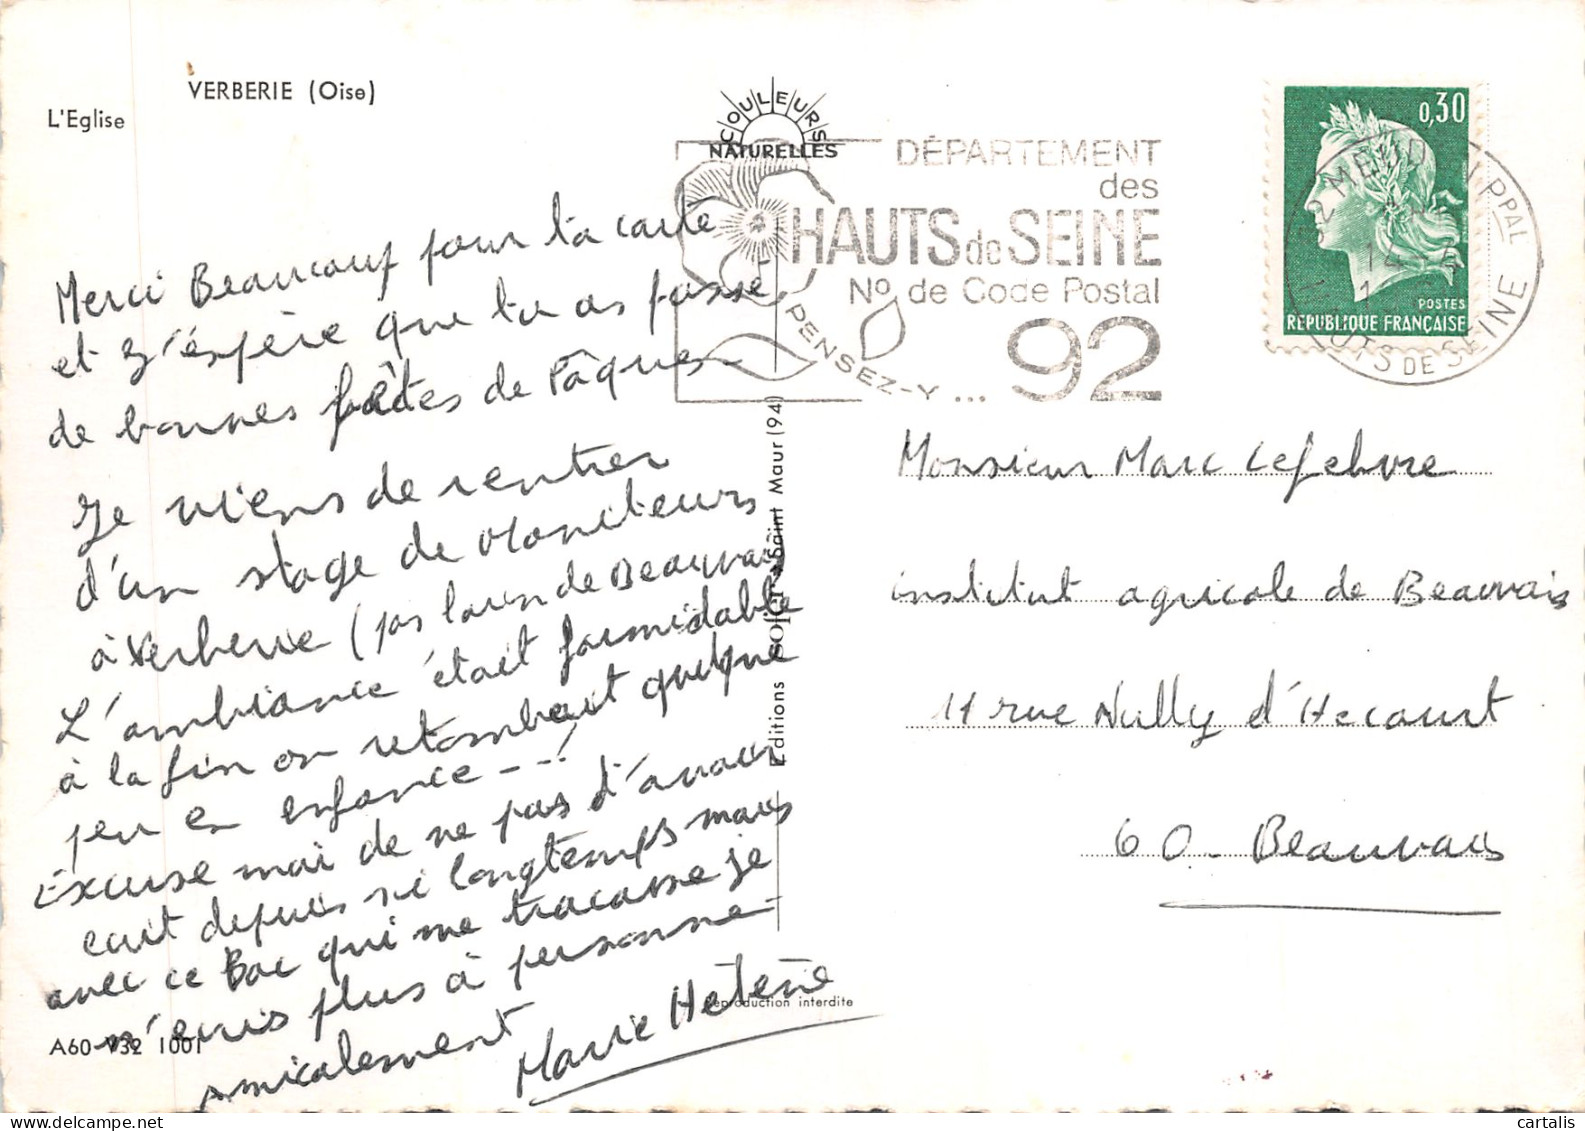 VERBERIE (Oise)
L'Eglise
COULEURS
NATURELLES
DÉPARTEMENT
des
HAUTS de SEINE
No de Code Postal
PENSEZ-Y ... 92
0,30
POSTES
REPUBLIQUE FRANÇAISE
92 MEUDON PPAL
HAUTS DE SEINE
Merci Beaucoup pour ta carte
et j'éspère que tu as passé
de bonnes fêtes de Pâques
Je viens de rentrer
d'un stage de Moniteurs
à Verberie (pas loin de Beauvais)
L'ambiance était formidable
à la fin on retombait quelque
peu en enfance --!
Excuse moi de ne pas d'avoir
écrit depuis si longtemps mais
avec ce Bac qui me tracasse je
n'écris plus à personne
Amicalement
Marie Hélène
Monsieur Marc Lefebvre
institut agricole de Beauvais
11 rue Nully d'Hecourt
60 - Beauvais
Editions SOFER - Saint Maur (94)
Reproduction interdite
A60 932 1001
cartalis
delcampe.net